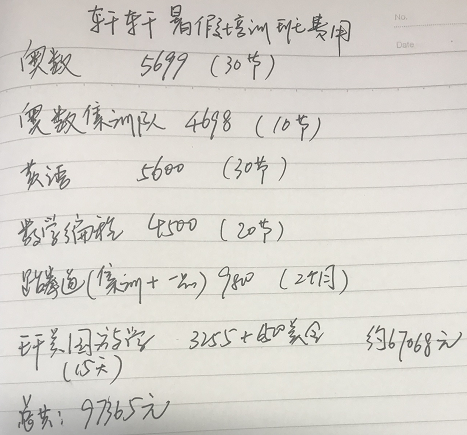 轩轩暑假培训班费用
No.
Date.
奥数 5699 (30节)
奥数集训队 4698 (10节)
英语 5600 (30节)
数学编程 4500 (20节)
跆拳道(集训+一品) 9800 (2个月)
美国游学 3255+6500美金 约67068元
(15天)
总共: 97365元